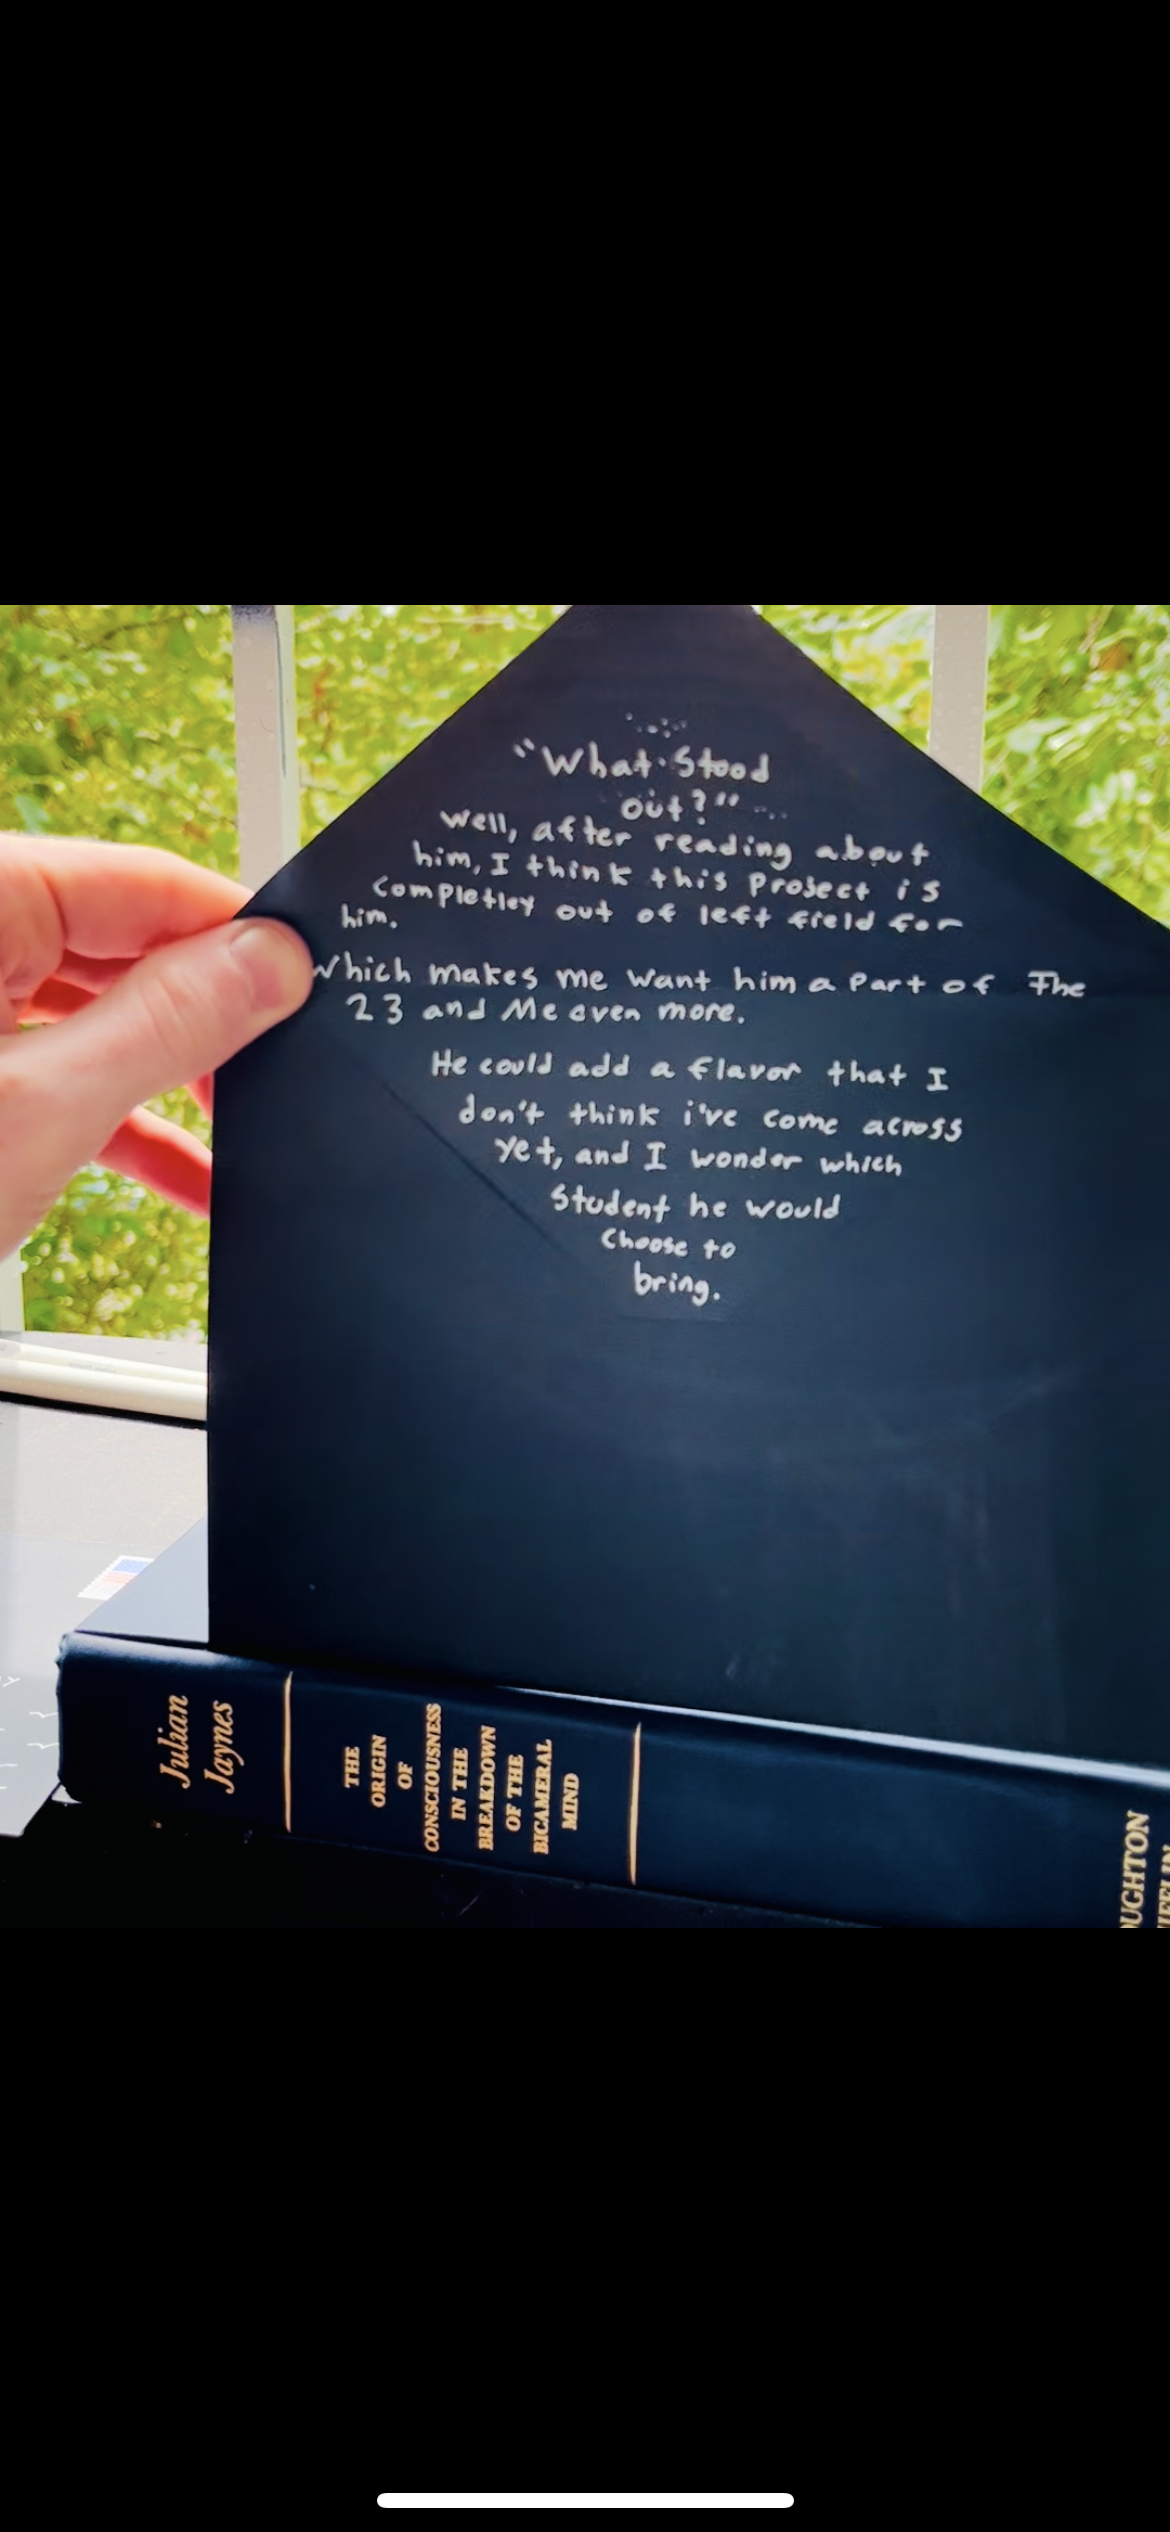 "What Stood
out?"
Well, after reading about
him, I think this Project is
Completley out of left field for
him.
Which makes me want him a Part of The
23 and Me even more.
He could add a flavor that I
don't think i've come across
Yet, and I wonder which
Student he would
Choose to
bring.
Julian
Jaynes
THE
ORIGIN
OF
CONSCIOUSNESS
IN THE
BREAKDOWN
OF THE
BICAMERAL
MIND
OUGHTON